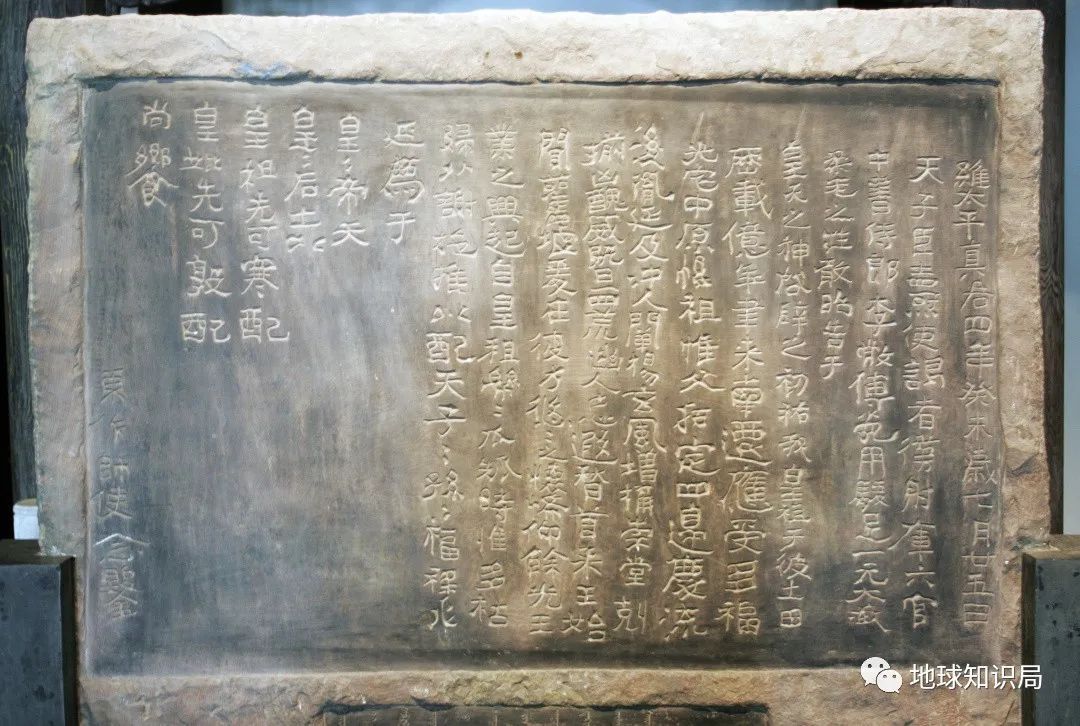 維太平真君四年癸未歲七月廿五日
天子臣燾使謁者僕射庫六官
中書侍郎李敞傅㝹用駿足一元大武
柔毛之牲敢昭告于
皇天之神啟辟之初祐我皇祖于彼土田
歷載億年聿來南遷應受多福
光宅中原惟祖惟父拓定四邊慶流
後胤延及沖人闡揚玄風增構崇堂剋
揃凶醜威暨四荒幽人忘遐稽首來王始
聞舊墟爰在彼方悠〻之懷希仰餘光王
業之興起自皇祖綿〻瓜瓞時惟多祜
歸以謝施推以配天子〻孫〻福祿永
延薦于
皇〻帝天
皇〻后土以
皇祖先可寒配
皇妣先可敦配
尚饗
東作帥使念鑿
地球知识局